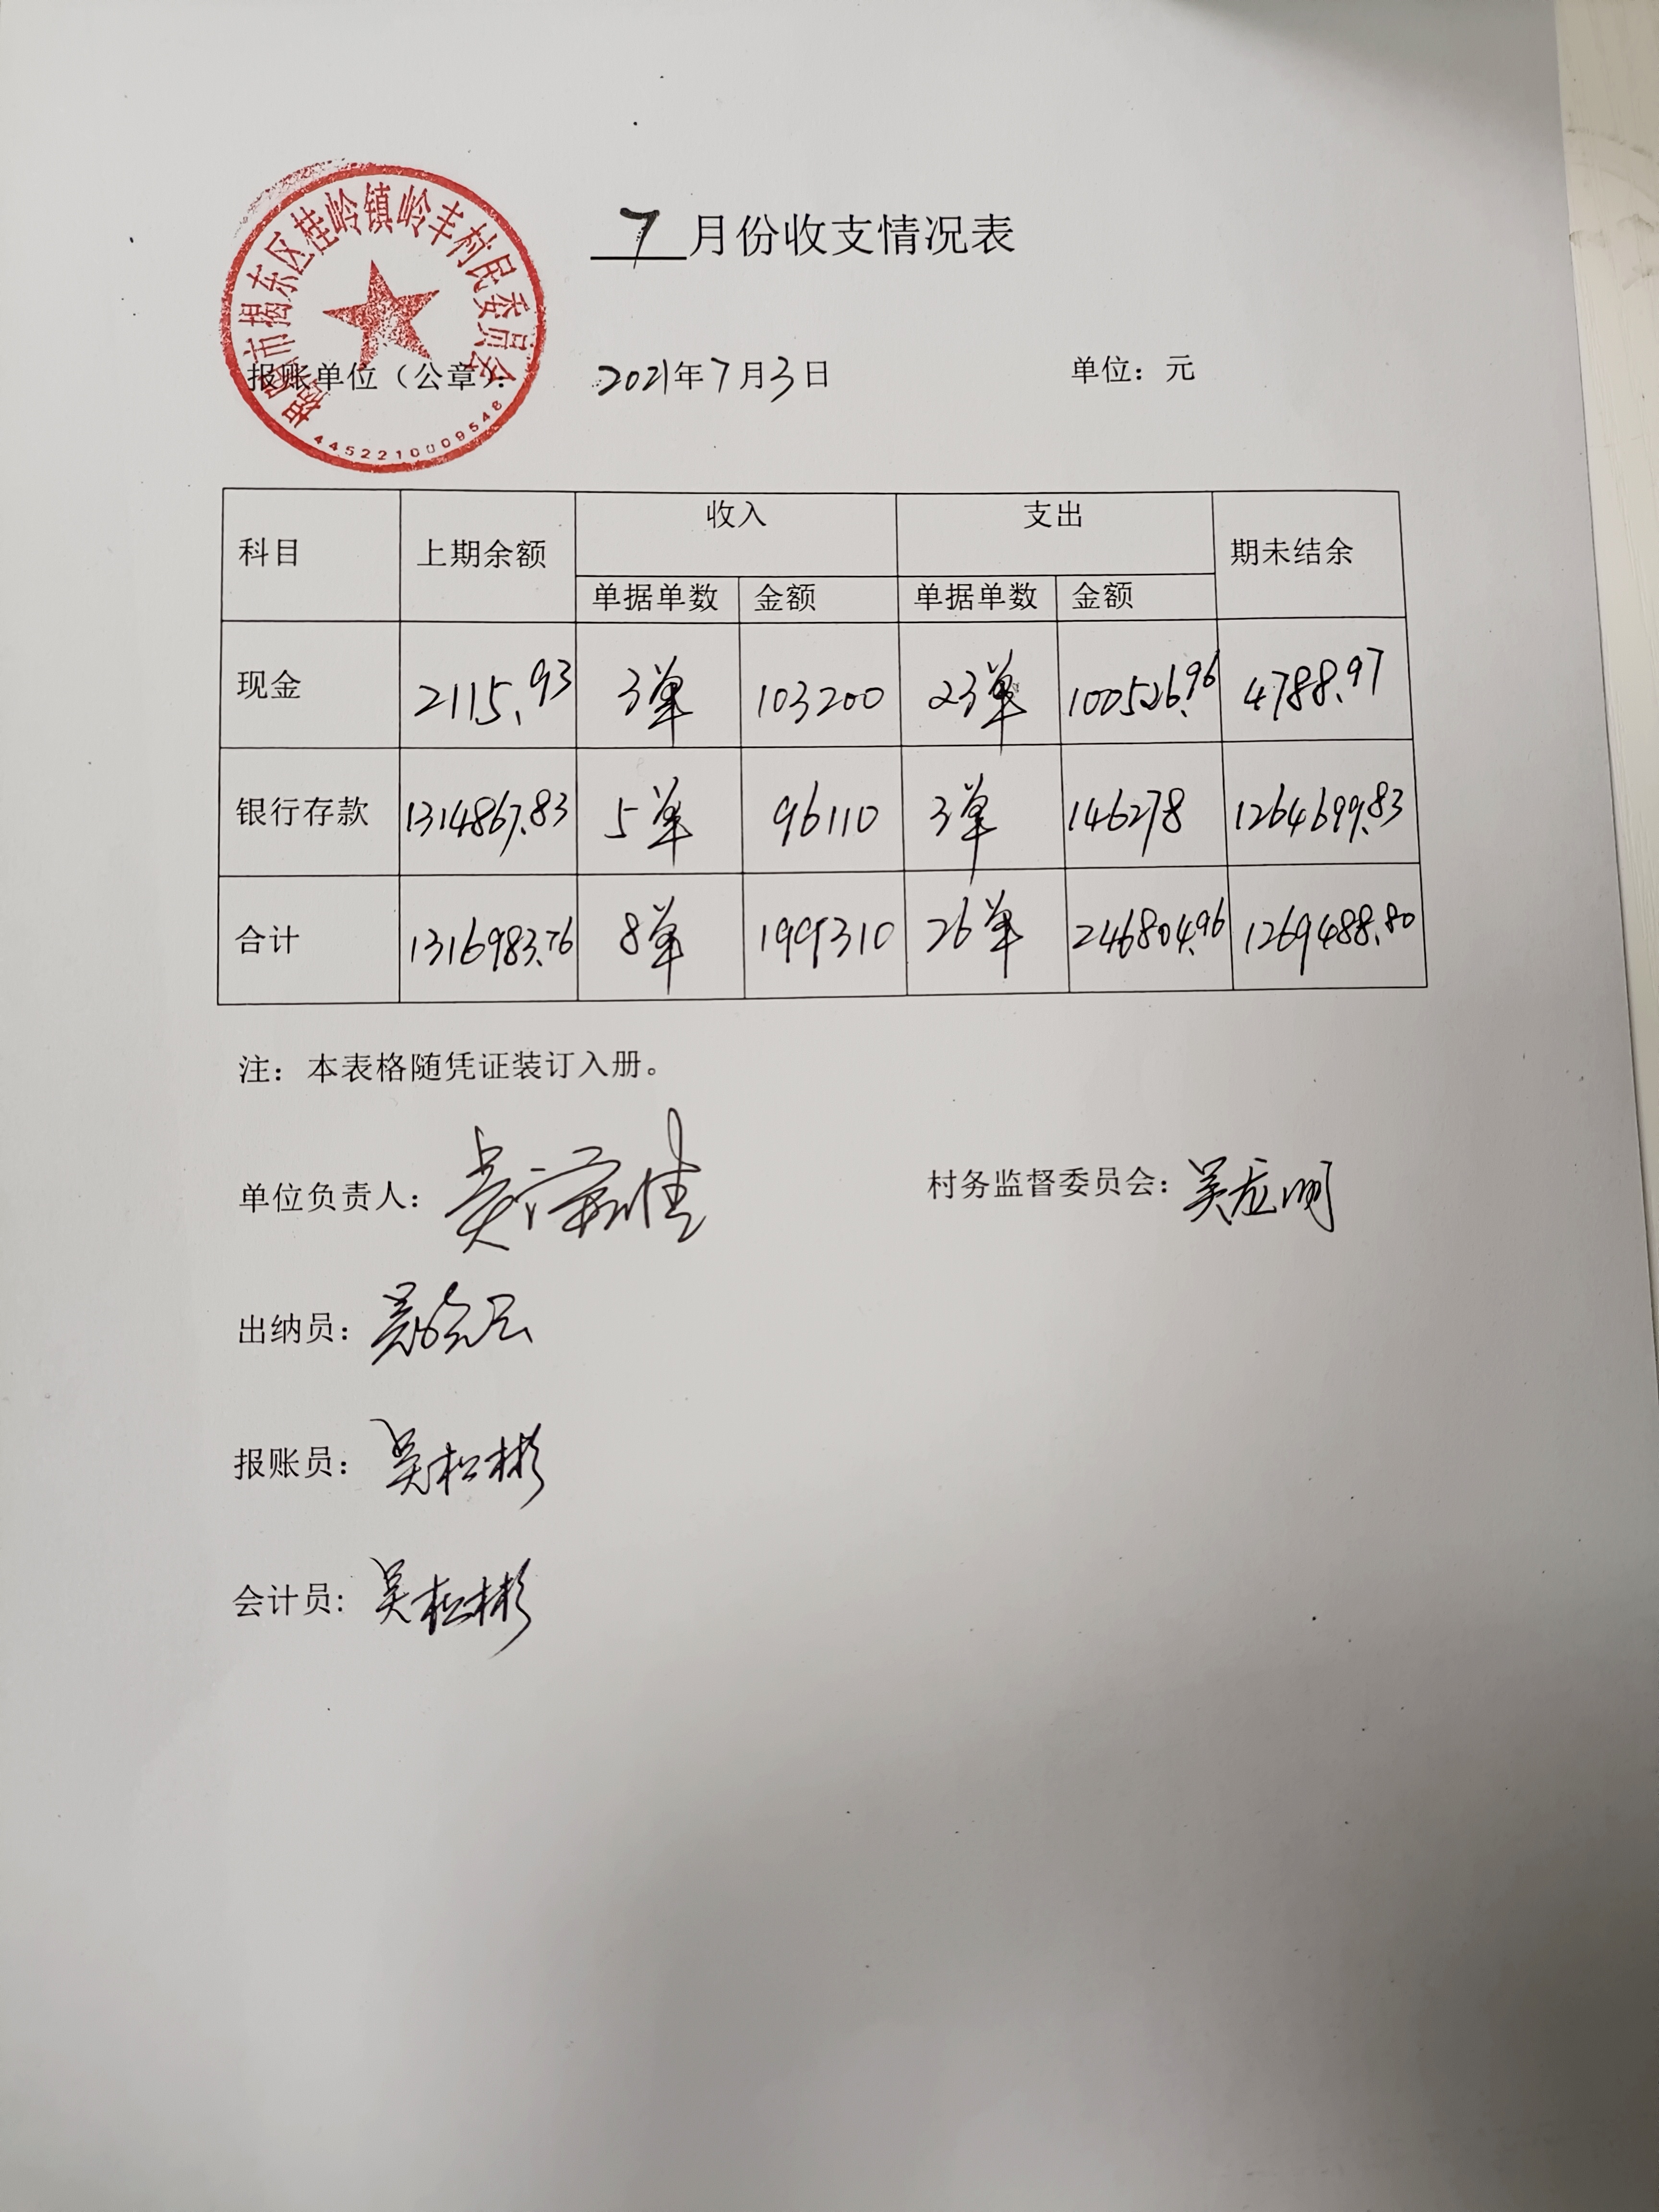 7月份收支情况表
揭阳市揭东区桂岭镇岭丰村民委员会
4452210009548
报账单位（公章）： 2021年7月3日 单位：元
科目 上期余额 收入 支出 期未结余
单据单数 金额 单据单数 金额
现金 2115.93 3单 103200 23单 100526.96 4788.97
银行存款 1314867.83 5单 96110 3单 146278 1264699.83
合计 1316983.76 8单 199310 26单 246804.96 1269488.80
注：本表格随凭证装订入册。
单位负责人： 村务监督委员会：
出纳员：
报账员：吴松彬
会计员：吴松彬